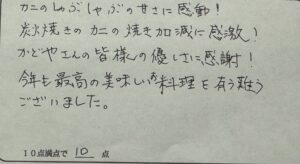 カニのしゃぶしゃぶの甘さに感動！
炭火焼きのカニの焼き加減に感激！
かどやさんの皆様の優しさに感謝！
今年も最高の美味しいお料理を有り難う
ございました。
10点満点で 10 点